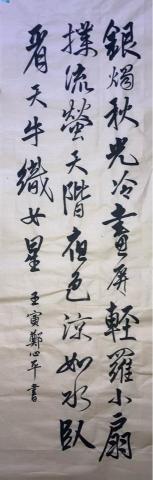 銀燭秋光冷畫屏輕羅小扇
撲流螢天階夜色涼如水臥
看天牛織女星
壬寅鄭心平書